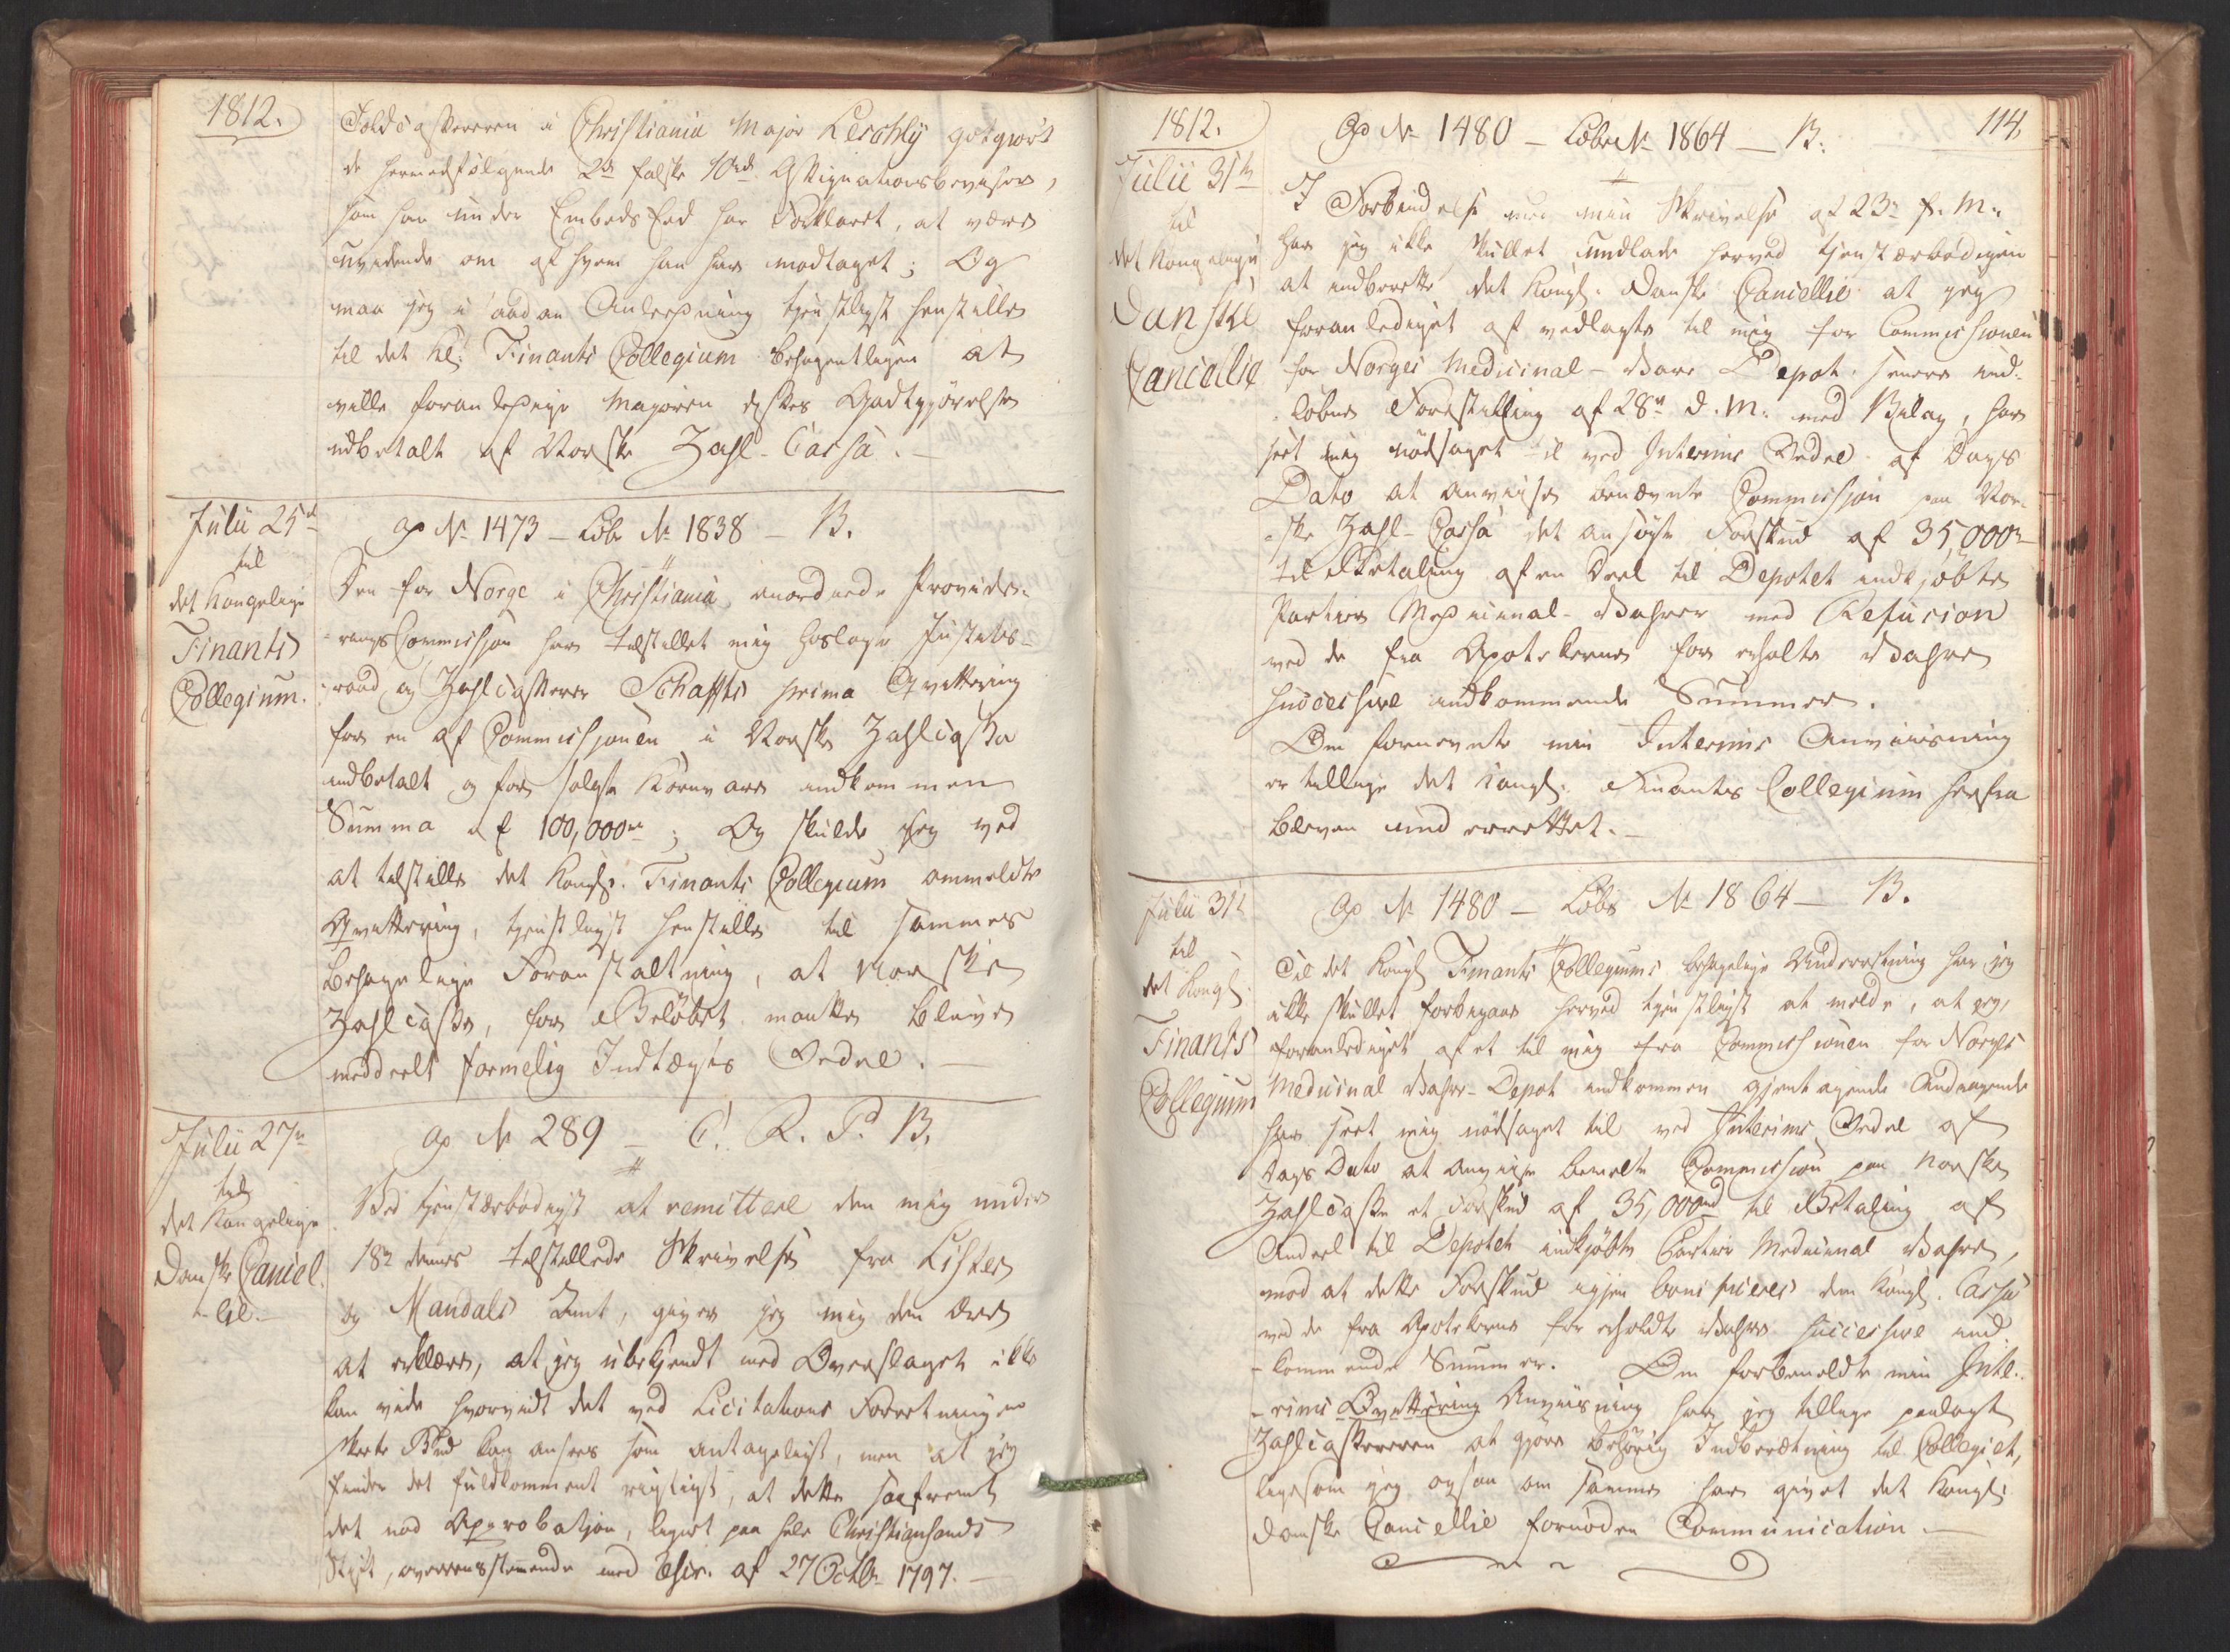 1812.
Toldcasserern i Christiania Major Lerchly godtgiort
de hermedfølgende 2de falske 10rd Assignationsbeviser,
som han under Embeds Eed har Forklaret, at være
uvidende om af hvem han har modtaget; Og
maa jeg i saadan Anledning tjenstligst henstille
til det Kl. Finants Collegium behagentligen at
ville foranledige Majoren disses Godtgjörelse
udbetalt af Norske Zahl-Cassa.
Julii 25d
til
det Kongelige
Finants
Collegium.
Gp No 1473 – Löbe No 1838 – B.
Den for Norge i Christiania anordnede Provide-
-rings Commission har tilstillet mig hoslagde Justits-
-raad og Zahlcasserer Schafts prima Qvittering
for en af Commissjonen i Norske Zahlcassa
indbetalt og for solgte Kornvare indkommen
Summa af 100,000rd; Og skulde jeg ved
at tilstille det Kongl. Finants Collegium anmeldte
Qvittering, tjenstligst henstille til sammes
behagelige Foranstaltning, at Norske
Zahlcasse, for Belöbet maatte blive
meddeelt formelig Indtægts Ordre.
Julii 27n
til
det Kongelige
Danske Cancel
-lie.
Gp No 289 – C. R. P. B.
Ved tjenstærbödigst at remittere den mig under
18de dennes tilstillede Skrivelse fra Lister
og Mandals Amt, giver jeg mig den ære
at erklære, at jeg ubekjendt med Overslaget ikke
kan vide hvorvidt det ved Licitations Forretningen
skeete Bud kan ansees som antageligt, men at jeg
finder det fuldkomment rigtigt, at dette saafremt
det nod Approbatjon, lignet paa hele Christiansands
Stift, overensstemmende med Circ. af 27 Octbr 1797.
1812.
114.
Julii 31te
til
det Kongelige
Danske
Cancellie
Gp No 1480 – Löbe No 1864 – B.
I Forbindelse med min Skrivelse af 23de f. M.
har jeg ikke skullet undlade herved tjenstærbödigen
at indberette det Kongl. Danske Cancellie at jeg
foranlediget af vedlagte til mig for Commissionen
for Norges Medicinal-Vare Depot senere ind-
-löbne Forestilling af 28de d. M. med Bilag, har
seet mig nödsaget til ved Interims Ordre af Dags
Dato at anviise benævnte Commissjon paa Nor-
-ske Zahl-Cassa det ansögte Forskud af 35,000rd
til Betaling af en Deel til Depotet indkjöbte
Partier Medicinal-Vahrer med Refusion
ved de fra Apotekerne for erholdte Vahre
successive indkommende Summer.
Om fornevnte min Interims Anviisning
er tillige det Kongl. Finants Collegium herfra
bleven underrettet.
Julii 31te
til
det Kongl.
Finants
Collegium
Gp No 1480 – Löbe No 1864 – B.
Til det Kongl Finants Collegiums behagelige Underretning har jeg
ikke skullet forbigaae herved tjenstligst at melde, at jeg,
foranlediget af et til mig fra Commissionen for Norges
Medicinal Vahre-Depot indkommen gjentagende Andragende
har seet mig nödsaget til ved Interims Ordre af
Dags Dato at anviise bemelte Commission paa Norske
Zahlcasse et Forskud af 35,000rd til Betaling af
Andeel til Depotet indkjöbte Partier Medicinal Vahre,
mod at dette Forskud igjen bonificeres den Kongl. Cassa
ved de fra Apotekerne for erholdte Vahre successive ind-
-kommende Summer. Om forbemeldte min Inte-
-rims Qvittering Anviisning har jeg tillige paalagt
Zahlcassereren at gjöre behörig Indberetning til Collegiet,
ligesom jeg ogsaa om samme har givet det Kongl.
Danske Cancellie fornöden Communication.